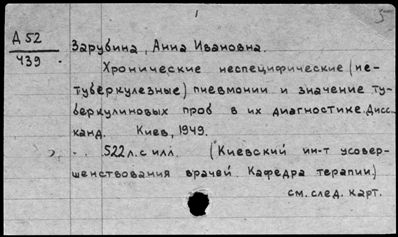 Д 52
439
Зарубина, Анна Ивановна.
Хронические неспецифические (не-
туберкулезные) пневмонии и значение ту-
беркулиновых проб в их диагностике. Дисс.
канд. Киев, 1949.
522 л. с илл. (Киевский ин-т усовер-
шенствования врачей. Кафедра терапии.)
см. след. карт.